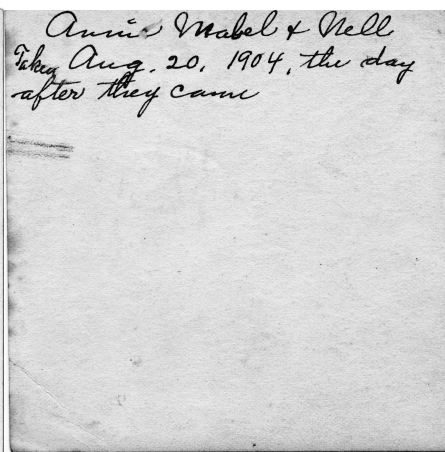 Annie Mabel & Nell
Taken Aug. 20, 1904, the day
after they came